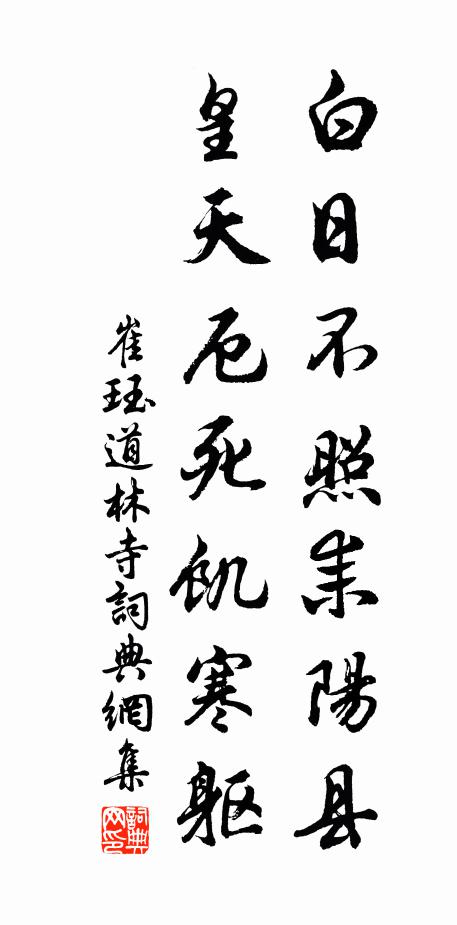 白日不照耒陽县
皇天厄死飢寒軀
崔珏道林寺詞典網集
詞典网印